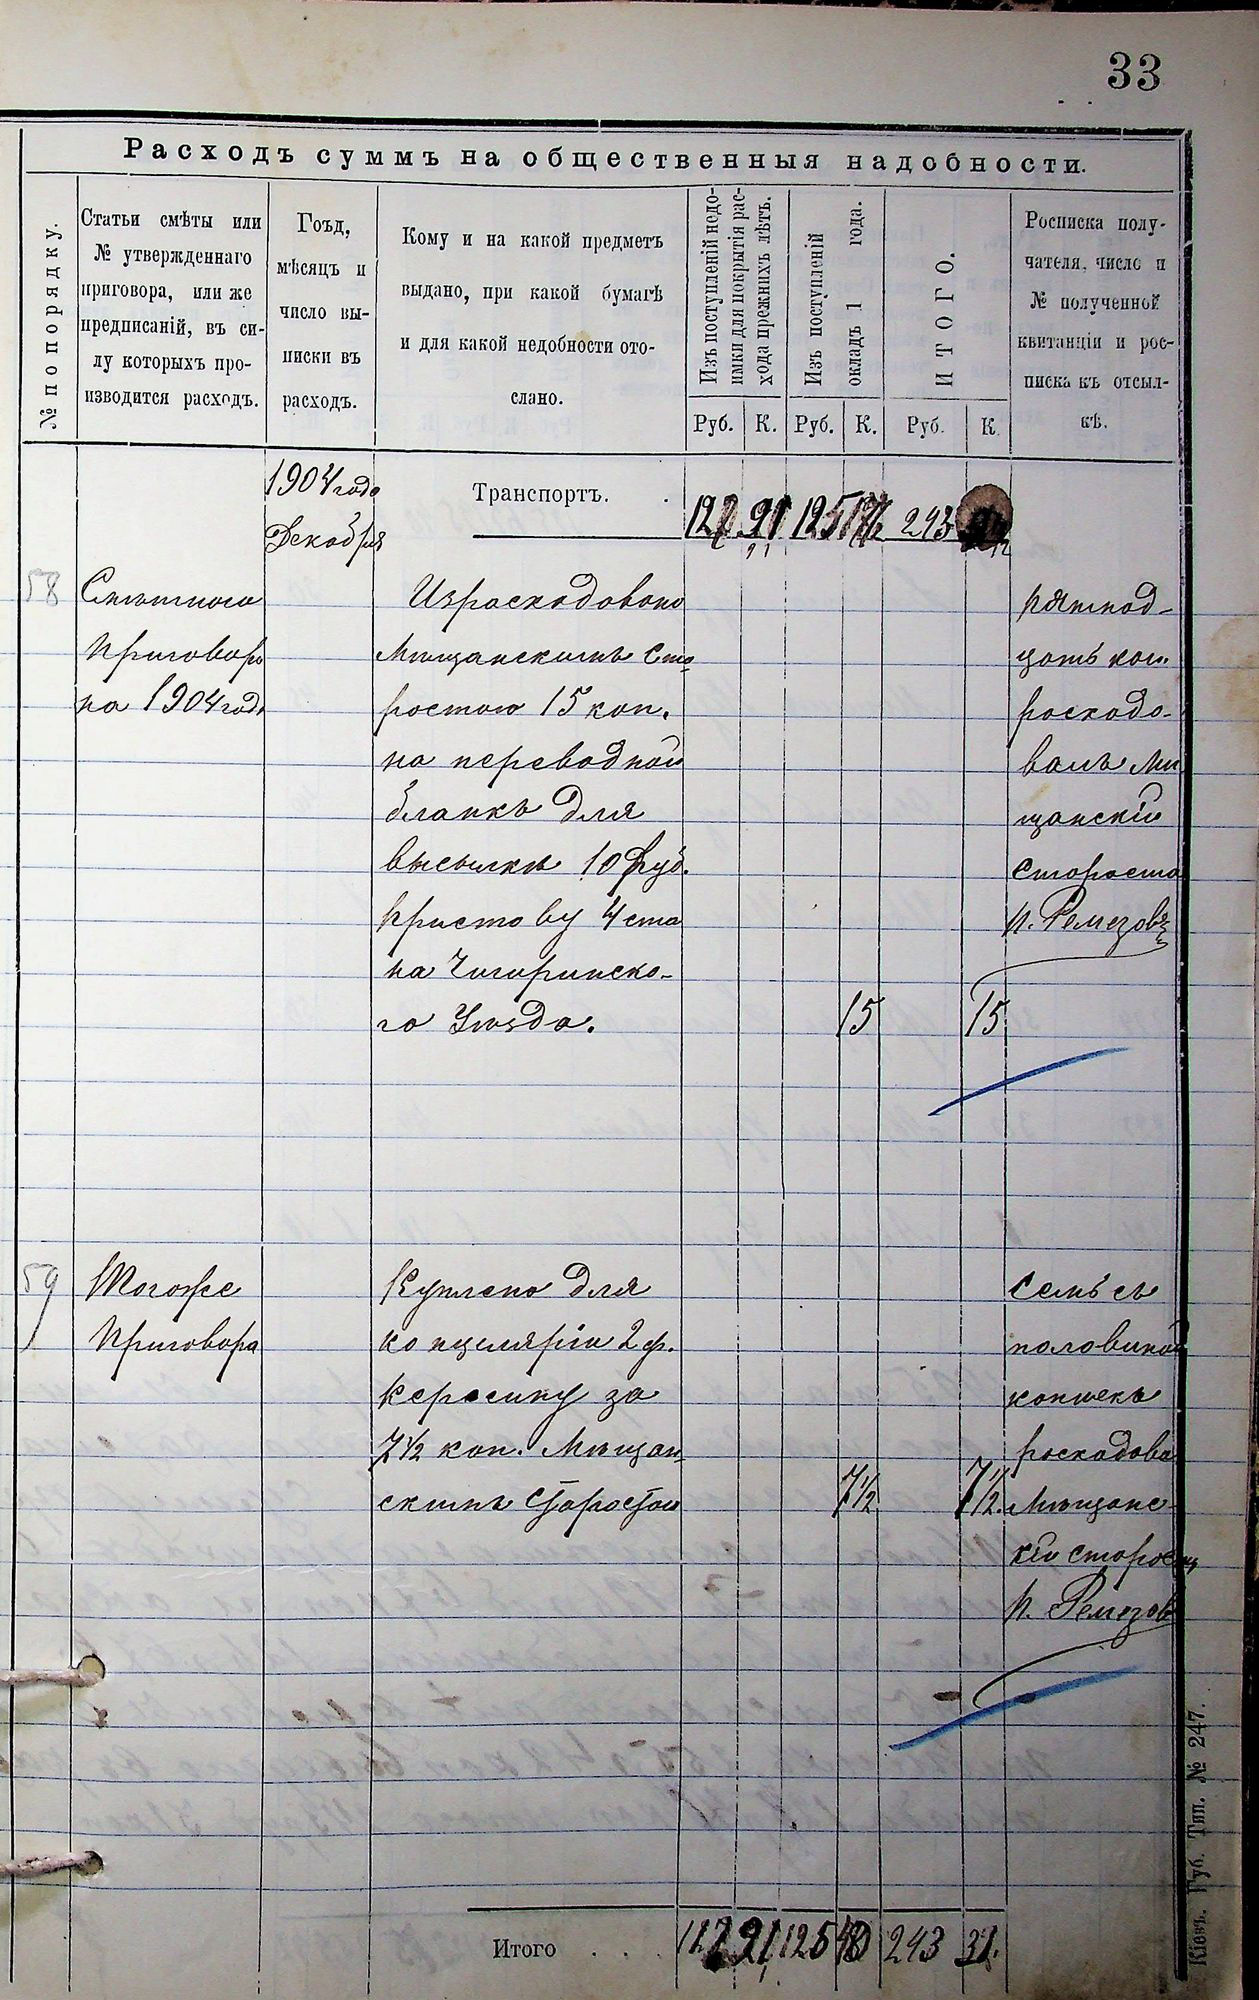 33
Расходъ суммъ на общественныя надобности.
№ по порядку.
Статьи смѣты или
№ утвержденнаго
приговора, или же
предписаній, въ си-
лу которыхъ про-
изводится расходъ.
Гоъд,
мѣсяцъ и
число вы-
писки въ
расходъ.
Кому и на какой предметъ
выдано, при какой бумагѣ
и для какой недобности ото-
слано.
Изъ поступленій недо-
имки для покрытія рас-
хода прежнихъ лѣтъ.
Изъ поступленій
окладъ 1 года.
ИТОГО.
Росписка полу-
чателя, число и
№ полученной
квитанціи и рос-
писка къ отсыл-
кѣ.
Руб. К. Руб. К. Руб. К
1904 года
Декабря
Транспортъ.
125 243
58
Смѣтного
Приговора
на 1904 года
Израсходовано
Мѣщанскимъ Ста
ростою 15 коп.
на переводной
бланкъ для
высылки 10 руб.
Приставу 4 ста
на Чигиринско-
го Уѣзда.
15 15
пятнад-
цать коп.
росходо-
валъ Мѣ
щанскій
Староста
И. Ремезовъ
59
Тогоже
Приговора
Куплено для
канцеляріи 2 ф.
керосину за
7½ коп. Мѣщан-
скимъ Старостою
7½ 7½.
Семь съ
половиной
копѣекъ
росходова
Мѣщанс-
кій староста
И. Ремезовъ
Итого
91 125 40 243 31.
Кіовъ. Губ. Тип. № 247.